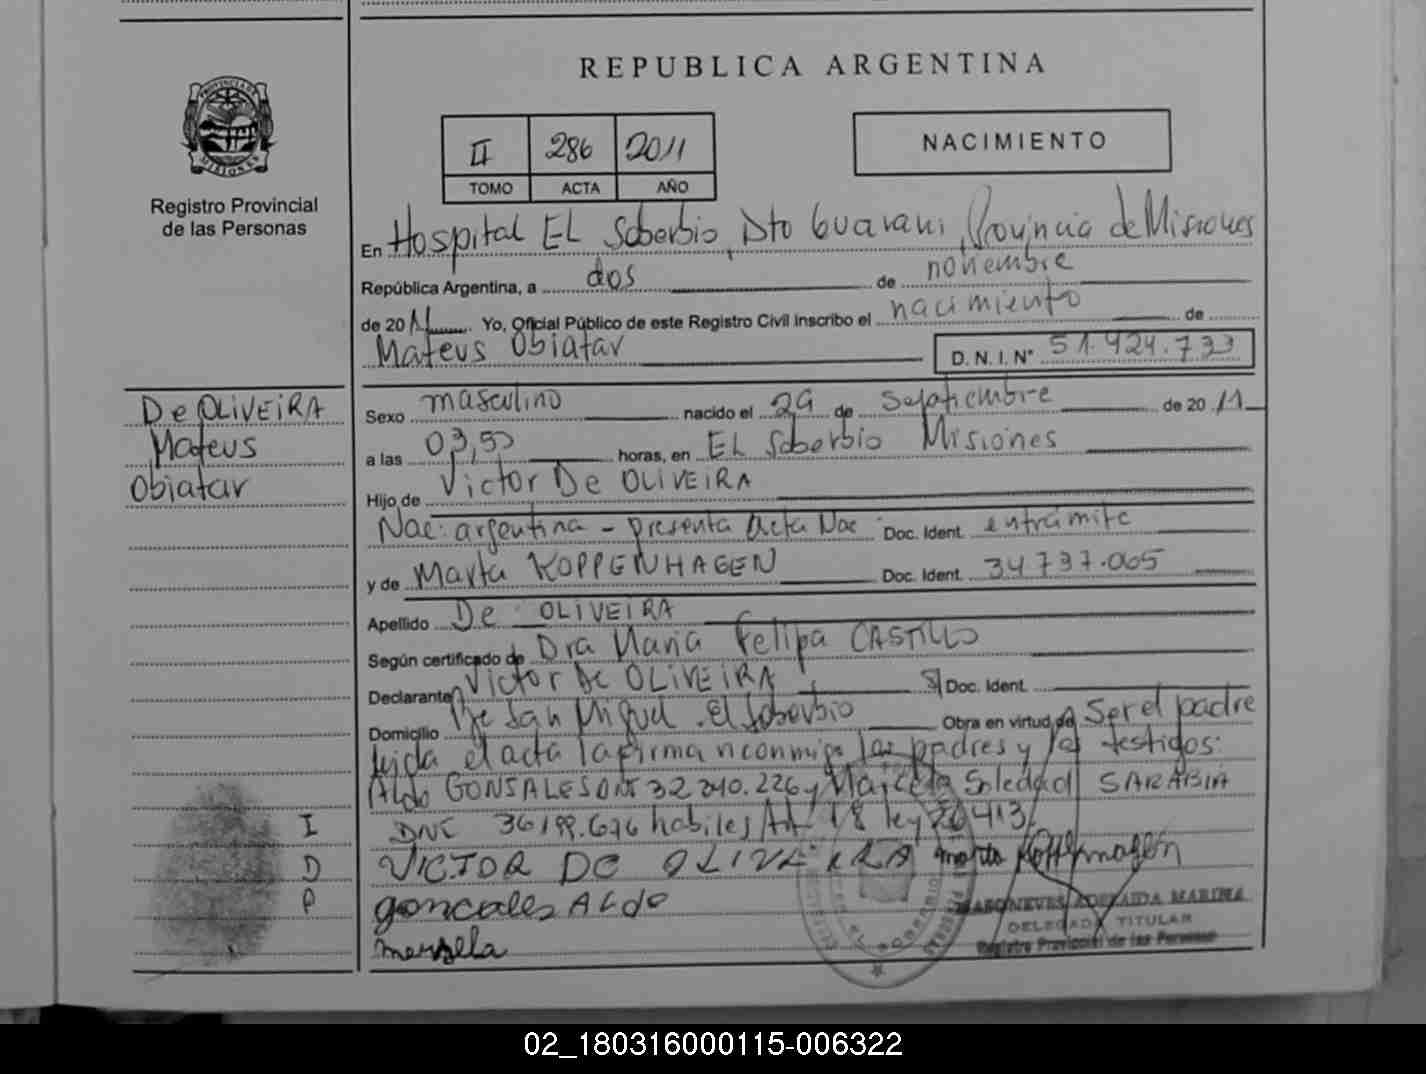 REPUBLICA ARGENTINA
PROVINCIA DE
MISIONES
Registro Provincial
de las Personas
II 286 2011
TOMO ACTA AÑO
NACIMIENTO
En Hospital EL Soberbio, Dto Guarani, Provincia de Misiones
República Argentina, a dos de noviembre
de 2011. Yo, Oficial Público de este Registro Civil inscribo el nacimiento de
Mateus Obiatar D. N. I. N° 51.424.733
De OLIVEIRA
Mateus
Obiatar
Sexo masculino nacido el 29 de Septiembre de 2011
a las 03,50 horas, en EL Soberbio Misiones
Hijo de Victor De OLIVEIRA
Nac: argentina - presenta Acta Nac Doc. Ident. entramite
y de Marta KOPPENHAGEN Doc. Ident. 34737.065
Apellido De OLIVEIRA
Según certificado de Dra Maria Felipa CASTILLO
Declarante Victor De OLIVEIRA Doc. Ident.
Domicilio San Miguel. El Soberbio Obra en virtud de Ser el padre
leida el acta la firman conmigo los padres y los testigos:
Aldo GONSALES DNI 32 240.226 y Marcela Soledad SARABIA
DNI 36199.676 habiles Art 18 ley 20413.
I
D
P
VICTOR DE OLIVEIRA marta Koppemagen
goncales ALdo
marzela
MARINA
DELEGADA TITULAR
Registro Provincial de las Personas
02_180316000115-006322